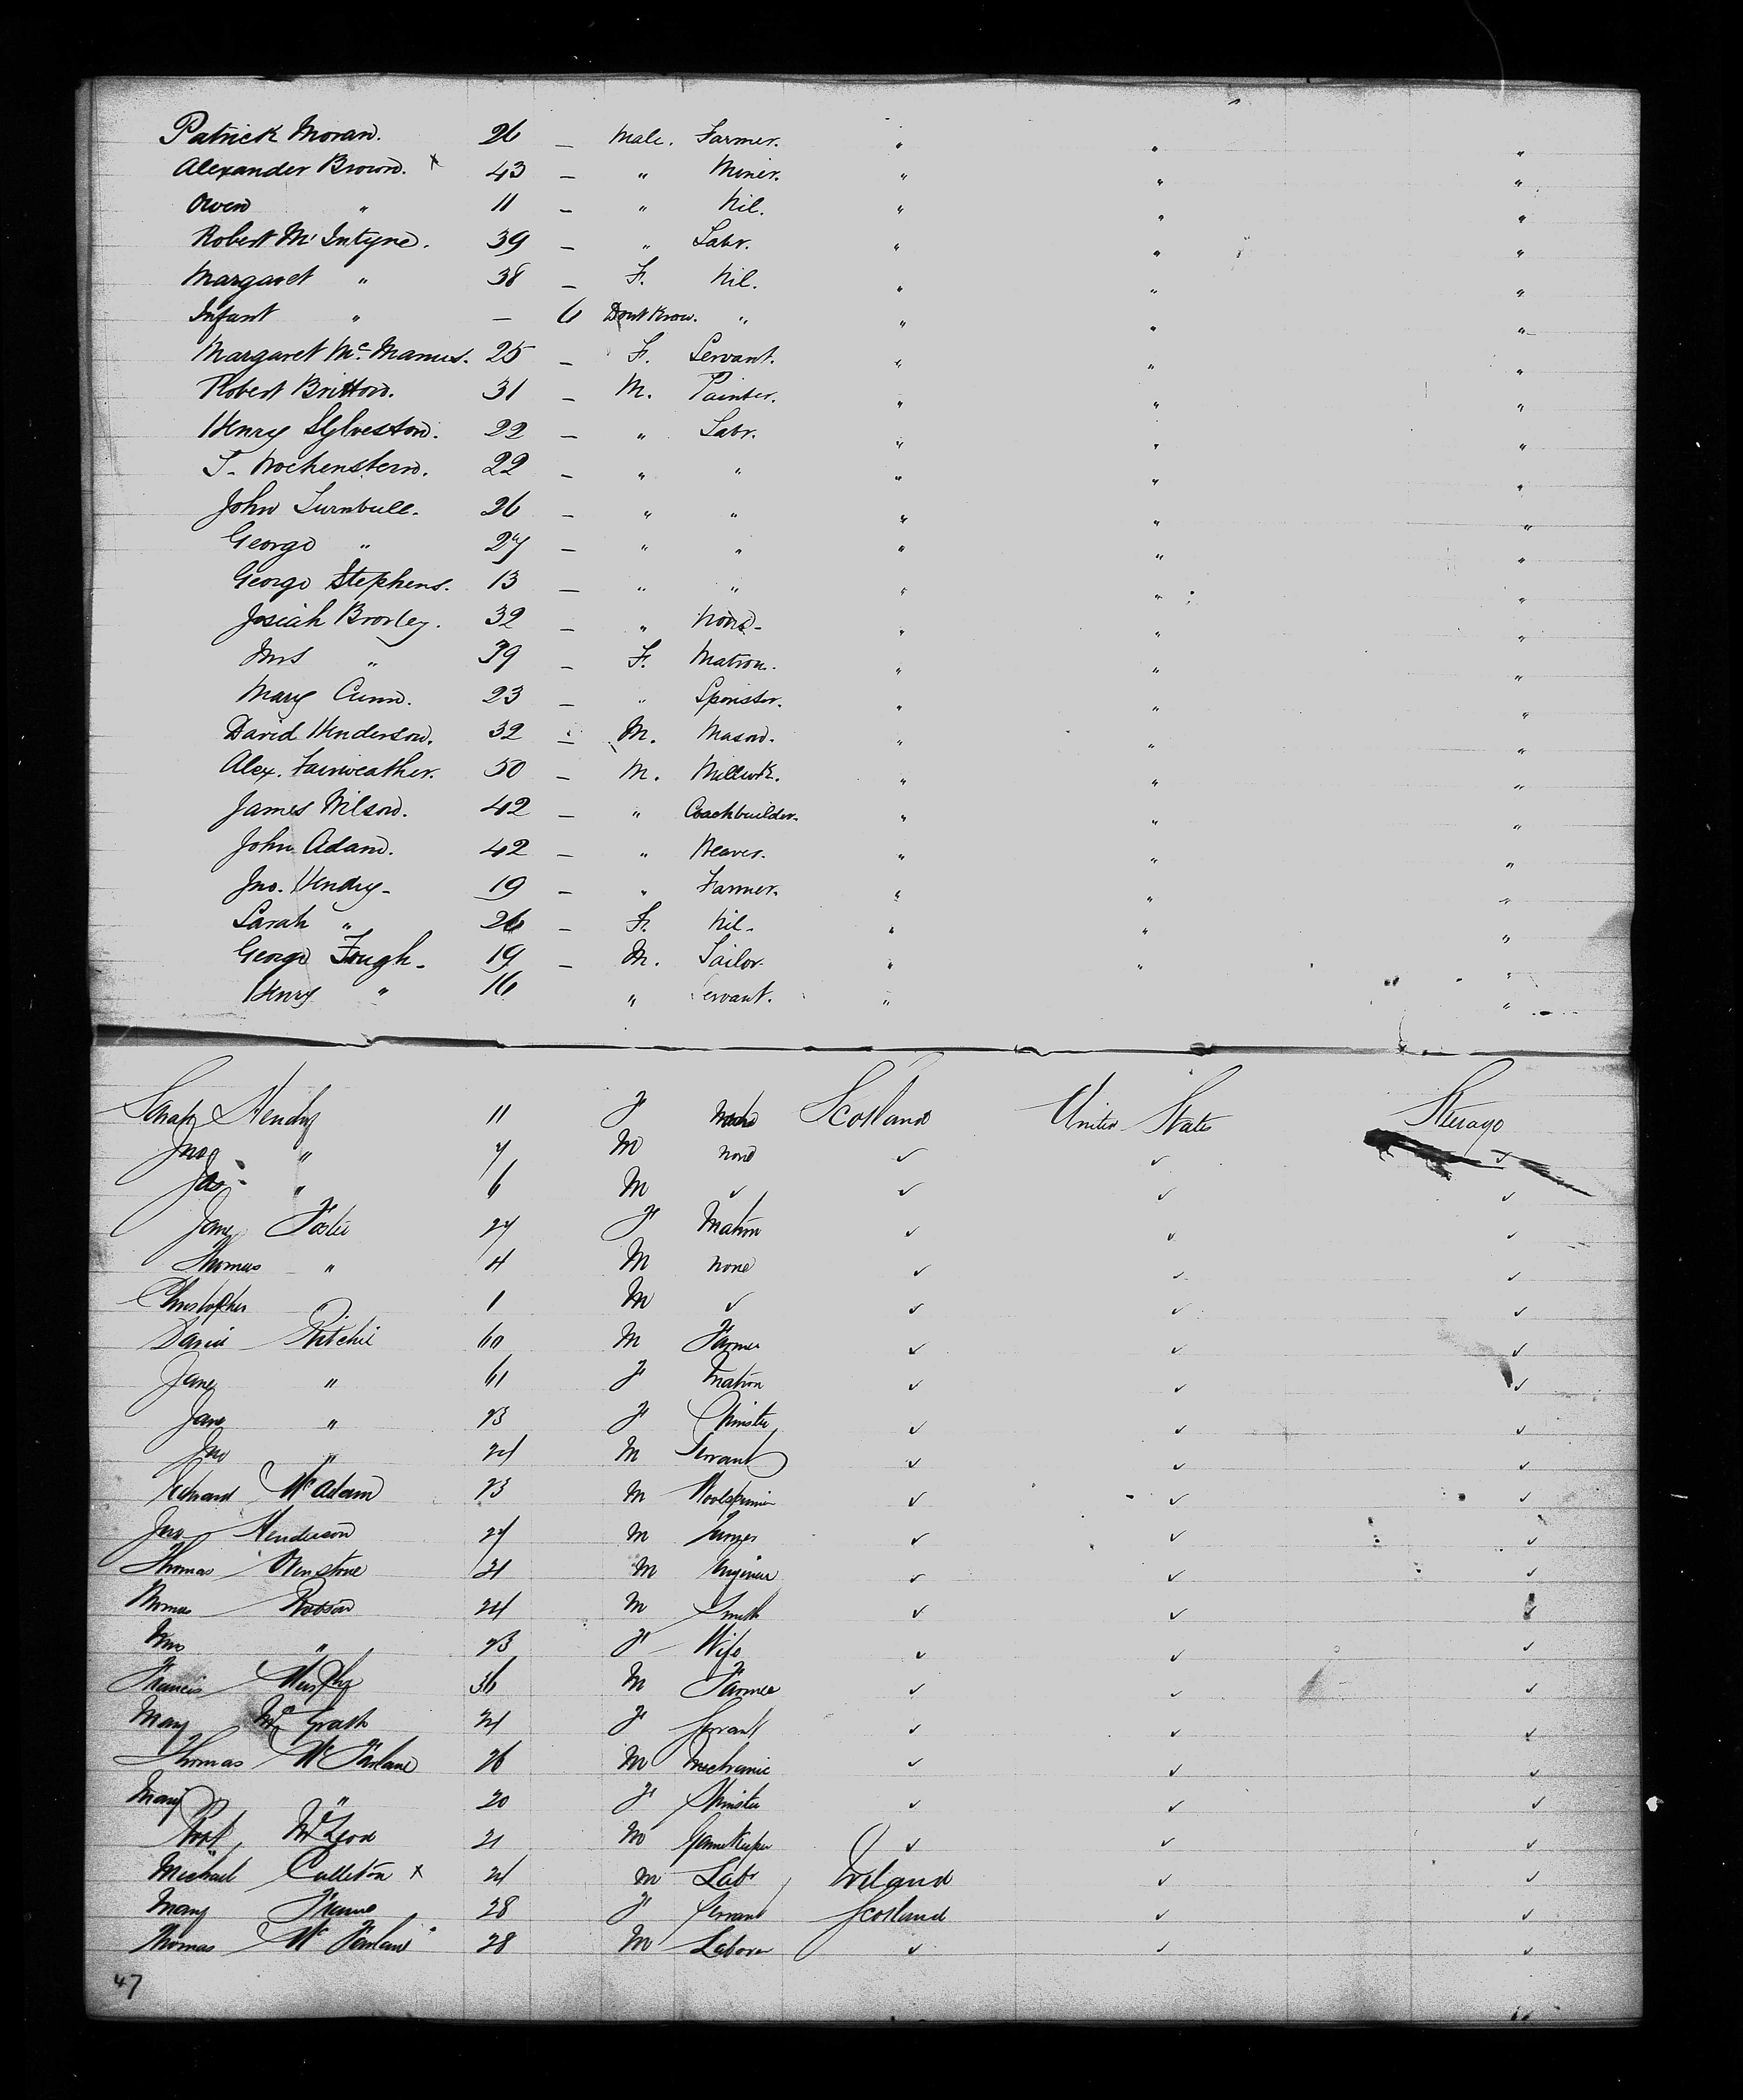 Patrick Moran. 26 — Male. Farmer. " " "
Alexander Brown. x 43 — " Miner. " " "
Owen " 11 — " Nil. " " "
Robert McIntyre. 39 — " Labr. " " "
Margaret " 38 — F. Nil. " " "
Infant " — 6 Dont Know. " " " "
Margaret Mc.Manus. 25 — F. Servant. " " "
Robert Britton. 31 — M. Painter. " " "
Henry Sylveston. 22 — " Labr. " " "
22 — " " " " "
John Turnbull. 26 — " " " " "
George " 27 — " " " " "
George Stephens. 13 — " " " " "
Josiah 32 — " " " "
Mrs " 39 — F. Matron. " " "
Mary Cunn. 23 — " Spinster. " " "
David Henderson. 32 — M. Mason. " " "
Alex. Fairweather. 50 — M. Millwrt. " " "
James Wilson. 42 — " Coachbuilder. " " "
John Adam. 42 — " Weaver. " " "
Jno. Hendry - 19 — " Farmer. " " "
Sarah " 26 — F. Nil - " " "
George Fough - 19 — M. Tailor. " " "
Henry " 16 " Servant. " "
Sarah Hendry 11 F Scotland United States Steerage
Jno " 7 M none ✓ ✓ ✓
Jas " 6 M ✓ ✓ ✓ ✓
Jane Foster 27 F Matron ✓ ✓ ✓
Thomas " 4 M none ✓ ✓ ✓
Christopher " 1 M ✓ ✓ ✓ ✓
David Ritchie 60 M Farmer ✓ ✓ ✓
Jane " 61 F Matron ✓ ✓ ✓
Jane " 23 F Spinster ✓ ✓ ✓
Jno " 24 M Servant ✓ ✓ ✓
Richard McAdam 23 M Woolspinner ✓ ✓ ✓
Jno Henderson 27 M ✓ ✓ ✓
Thomas 21 M Engineer ✓ ✓ ✓
Thomas Robson 24 M Smith ✓ ✓ ✓
Mrs " 23 F Wife ✓ ✓ ✓
Francis Murphy 36 M Farmer ✓ ✓ ✓
Mary McGrath 21 F Servant ✓ ✓ ✓
Thomas McFarlane 26 M Mechanic ✓ ✓ ✓
Mary " 20 F Spinster ✓ ✓ ✓
Robt McLeod 21 M Gamekeeper ✓ ✓ ✓
Michael Culleton x 21 M Labr Ireland ✓ ✓
Mary 28 F Servant Scotland ✓ ✓
Thomas McFarlane 28 M Laborer ✓ ✓ ✓
47